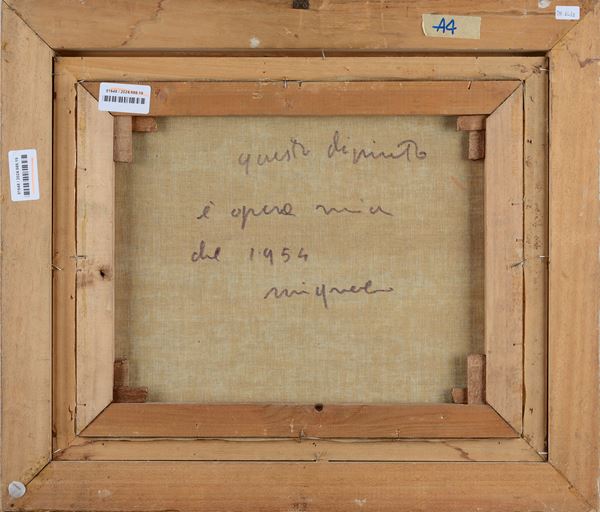 A4
questo dipinto
è opera mia
del 1954
migneco